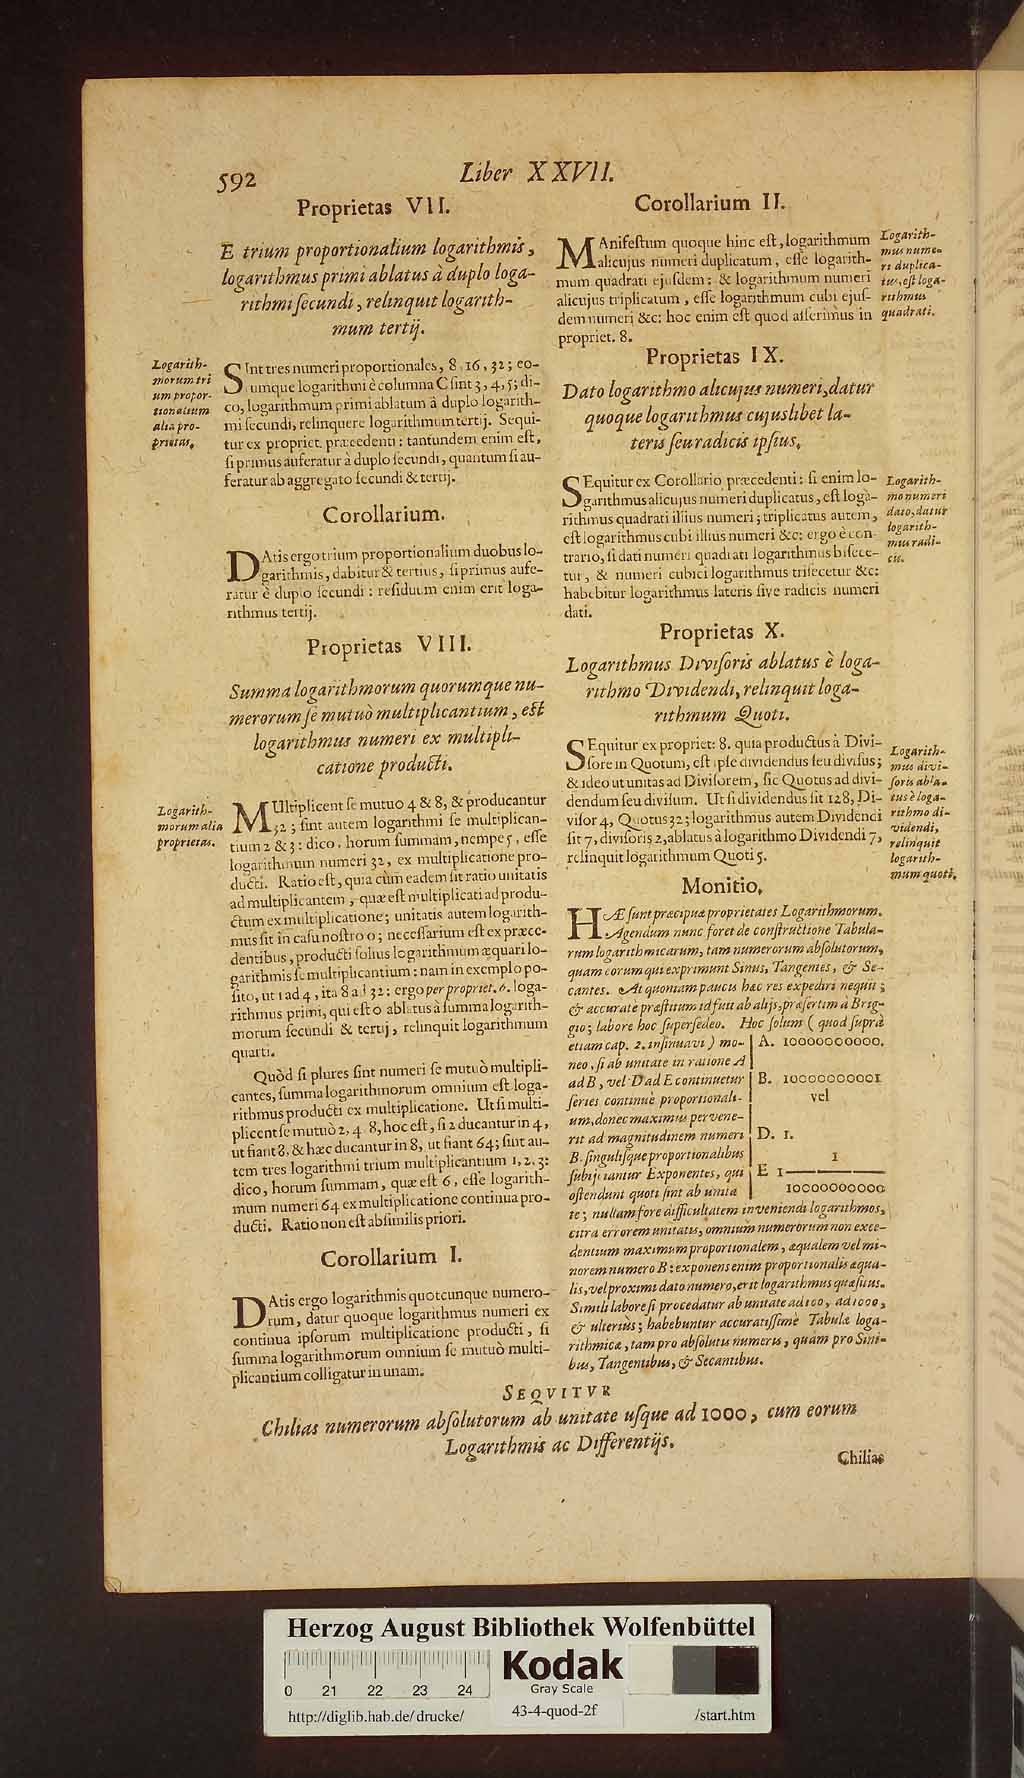 592
Liber XXVII.
Proprietas VII.
E trium proportionalium logarithmis,
logarithmus primi ablatus à duplo loga-
rithmi secundi, relinquit logarith-
mum tertij.
Logarith-
morum tri
um propor-
tionalium
alia pro-
prietas,
SInt tres numeri proportionales, 8 16, 32; eo-
rumque logarithmi è columna C sint 3, 4, 5; di-
co, logarithmum primi ablatum à duplo logarith-
mi secundi, relinquere logarithmum tertij. Sequi-
tur ex propriet. præcedenti: tantundem enim est,
si primus auferatur à duplo secundi, quantum si au-
feratur ab aggregato secundi & tertij.
Corollarium.
DAtis ergo trium proportionalium duobus lo-
garithmis, dabitur & tertius, si primus aufe-
ratur è duplo secundi: residuum enim erit loga-
rithmus tertij.
Proprietas VIII.
Summa logarithmorum quorumque nu-
merorum se mutuò multiplicantium, est
logarithmus numeri ex multipli-
catione producti.
Logarith-
morum alia
proprietas.
MUltiplicent se mutuo 4 & 8, & producantur
32; sint autem logarithmi se multiplican-
tium 2 & 3: dico. horum summam, nempe 5, esse
logarithmum numeri 32, ex multiplicatione pro-
ducti. Ratio est, quia cùm eadem sit ratio unitatis
ad multiplicantem, quæ est multiplicati ad produ-
ctum ex multiplicatione; unitatis autem logarith-
mus sit in casu nostro 0; necessarium est ex præce-
dentibus, producti solius logarithmum æquari lo-
garithmis se multiplicantium: nam in exemplo po-
sito, ut 1 ad 4, ita 8 ad 32: ergo per propriet. 6. loga-
rithmus primi, qui est 0 ablatus à summa logarith-
morum secundi & tertij, relinquit logarithmum
quarti.
Quòd si plures sint numeri se mutuò multipli-
cantes, summa logarithmorum omnium est loga-
rithmus producti ex multiplicatione. Ut si multi-
plicent se mutuò 2, 4 8, hoc est, si 2 ducantur in 4,
ut fiant 8, & hæc ducantur in 8, ut fiant 64; sint au-
tem tres logarithmi trium multiplicantium 1, 2, 3:
dico, horum summam, quæ est 6, esse logarith-
mum numeri 64 ex multiplicatione continua pro-
ducti. Ratio non est absimilis priori.
Corollarium I.
DAtis ergo logarithmis quotcunque numero-
rum, datur quoque logarithmus numeri ex
continua ipsorum multiplicatione producti, si
summa logarithmorum omnium se mutuò multi-
plicantium colligatur in unam.
Corollarium II.
MAnifestum quoque hinc est, logarithmum
alicujus numeri duplicatum, esse logarith-
mum quadrati ejusdem: & logarithmum numeri
alicujus triplicatum, esse logarithmum cubi ejus-
dem numeri &c: hoc enim est quod asserimus in
propriet. 8.
Logarith-
mus nume-
ri duplica-
tus, est loga-
rithmus
quadrati.
Proprietas IX.
Dato logarithmo alicujus numeri, datur
quoque logarithmus cujuslibet la-
teris seu radicis ipsius.
SEquitur ex Corollario præcedenti: si enim lo-
garithmus alicujus numeri duplicatus, est loga-
rithmus quadrati illius numeri; triplicatus autem,
est logarithmus cubi illius numeri &c: ergo è con-
trario, si dati numeri quadrati logarithmus bisece-
tur, & numeri cubici logarithmus trisecetur &c:
habebitur logarithmus lateris sive radicis numeri
dati.
Logarith-
mo numeri
dato, datur
logarith-
mus radi-
cis.
Proprietas X.
Logarithmus Divisoris ablatus è loga-
rithmo Dividendi, relinquit loga-
rithmum Quoti.
SEquitur ex propriet: 8. quia productus à Divi-
sore in Quotum, est ipse dividendus seu divisus;
& ideo ut unitas ad Divisorem, sic Quotus ad divi-
dendum seu divisum. Ut si dividendus sit 128, Di-
visor 4, Quotus 32; logarithmus autem Dividendi
sit 7, divisoris 2, ablatus à logarithmo Dividendi 7,
relinquit logarithmum Quoti 5.
Logarith-
mus divi-
soris abla-
tus è loga-
rithmo di-
videndi,
relinquit
logarith-
mum quoti.
Monitio.
HÆ sunt præcipuæ proprietates Logarithmorum.
Agendum nunc foret de constructione Tabula-
rum logarithmicarum, tam numerorum absolutorum,
quam eorum qui exprimunt Sinus, Tangentes, & Se-
cantes. At quoniam paucis hæc res expediri nequit;
& accuratè præstitum id fuit ab alijs, præsertim à Brig-
gio; labore hoc supersedeo. Hoc solum (quod suprà
etiam cap. 2. insinuavi) mo-
neo, si ab unitate in ratione A
ad B, vel D ad E continuetur
series continuè proportionali-
um, donec maximus pervene-
rit ad magnitudinem numeri
B. singulisque proportionalibus
subijciantur Exponentes, qui
ostendunt quoti sint ab unita
A. 10000000000.
B. 10000000001
vel
D. 1.
E 1 1
10000000000
te; nullam fore difficultatem inveniendi logarithmos,
citra errorem unitatis, omnium numerorum non exce-
dentium maximum proportionalem, æqualem vel mi-
norem numero B: exponens enim proportionalis æqua-
lis, vel proximi dato numero, erit logarithmus quæsitus.
Simili labore si procedatur ab unitate ad 100, ad 1000,
& ulterius; habebuntur accuratissimè Tabulæ loga-
rithmicæ, tam pro absolutis numeris, quàm pro Sini-
bus, Tangentibus, & Secantibus.
SEQVITVR
Chilias numerorum absolutorum ab unitate usque ad 1000, cum eorum
Logarithmis ac Differentijs.
Chilias
Herzog August Bibliothek Wolfenbüttel
Kodak
Gray Scale
0 21 22 23 24
http://diglib.hab.de/drucke/
43-4-quod-2f
/start.htm